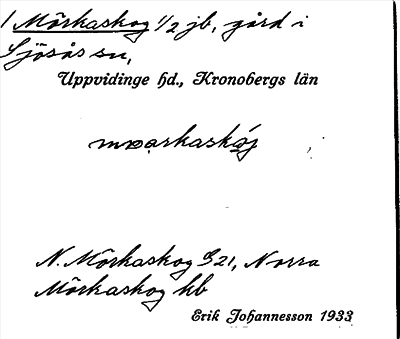 1 Mörkaskog 1/2 jb, gård i
Sjösås sn,
Uppvidinge hd., Kronobergs län
N. Mörkaskog G21, Norra
Mörkaskog kb
Erik Johannesson 1933